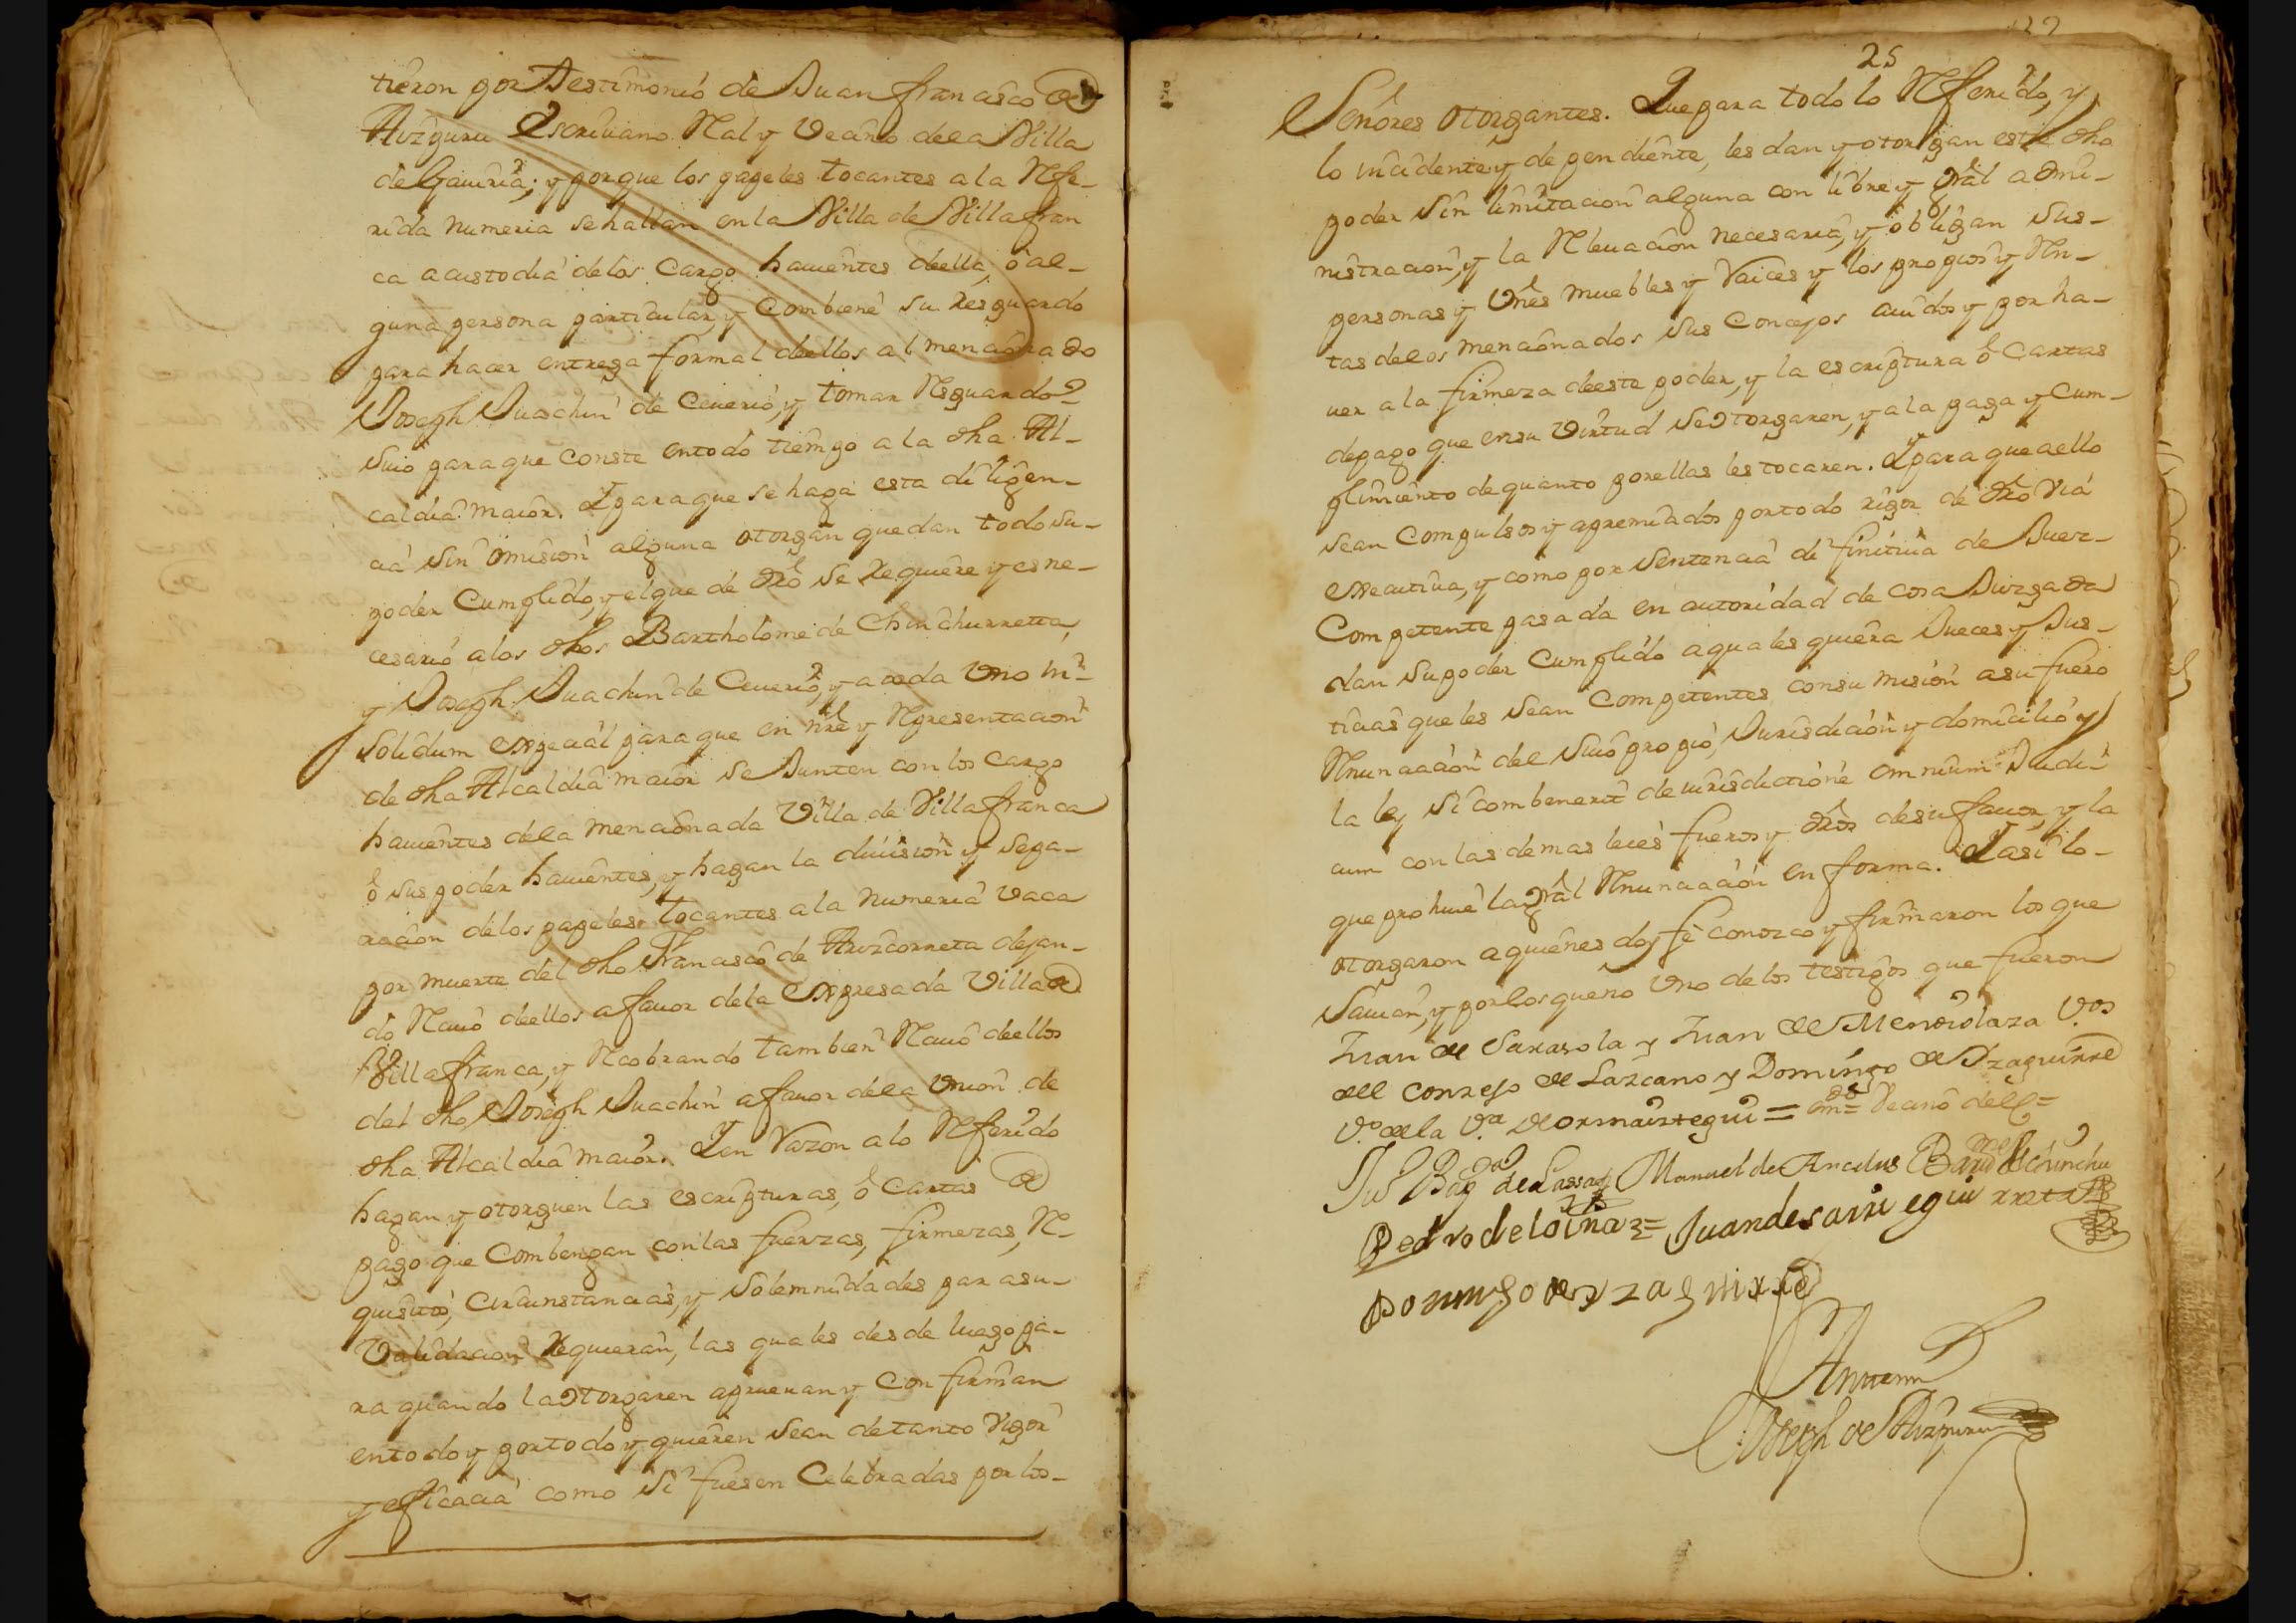 tieron por Testimonio de Juan francisco de
Auzguru Escriuano Real y Vecino de la Villa
de Gauiria; y porque los papeles tocantes a la Refe-
rida numeria se hallan en la Villa de Villafran
ca a custodia de los Cargo hauientes de ella, ô al-
guna persona particular, y Combiene su resguardo
para hacer entrega formal de ellos al mencionado
Joseph Juachin de Ceuerio, y tomar Resguardo
Suio para que conste en todo tiempo a la dha Al-
caldia maior. Y para que se haga esta diligen-
cia sin omision alguna otorgan que dan todo su
poder Cumplido, y el que de dro se requiere y es ne-
cesario a los dhos Bartholome de Chinchurreta,
y Joseph Juachin de Ceuerio, y a cada Vno in
solidum expecial para que en nre y Representacion
de dha Alcaldia maior se Junten con los Cargo
hauientes de la mencionada Villa de Villafranca
ô sus poder hauientes, y hagan la diuision y sepa-
racion de los papeles tocantes a la numeria vaca
por muerte del dho Francisco de Auzcorreta dejan-
do Reciuo de ellos a fauor de la expresada Villa de
Villafranca, y Recobrando tambien Reciuo de ellos
del dho Joseph Juachin a fauor de la Vnion de
dha Alcaldia maior. Y en Razon a lo Referido
hagan y otorguen las escripturas, ô Cartas de
pago que Combengan con las fuerzas, firmezas, Re-
quisitos, Circunstancias, y solemnidades para su
Validacion Requieran, las quales desde luego pa-
ra quando la otorgaren aprueuan y Confirman
en todo y por todo y quieren sean de tanto Vigor
y eficacia como si fuesen Celebradas por los
25
Señores otorgantes. Que para todo lo Referido, y
lo incidente y dependiente, les dan y otorgan este dho
poder sin limitacion alguna con libre y gral admi-
nistracion, y la Releuacion necesaria, y obligan sus
personas y Vnes muebles y Raices y los propios y Ren-
tas de los mencionados sus Concejos auidos y por ha-
uer a la firmeza de este poder, y la escriptura ô Cartas
de pago que en su Virtud se otorgaren, y a la paga y Cum-
plimiento de quanto por ellas les tocaren. Y para que a ello
sean Compulsos y apremiados por todo rigor de dro Via
executiua, y como por sentencia difinitiua de Juez
Competente pasada en autoridad de cosa Juzgada
dan su poder Cumplido a quales quiera Jueces y Jus-
ticias que les sean Competentes con sumision a su fuero
Renunciacion del suio propio, Jurisdicion y domicilio y
la ley si combenerit de iurisdictione omnium Judi-
cum con las demas leies fueros y dros de su fauor, y la
que prohiue la gral Renunciacion en forma. Y asi lo
otorgaron a quienes doy fe conozco y firmaron los que
Sauian, y por los que no Vno de los testigos que fueron
Juan de Sarasola y Juan de Mendiolaza V.os
del conzejo de Lazcano y Domingo de Yzaguirre
V.o de la V.a de ormaiztegui = em.do = Vecino del =
Manuel de Ancelus Bar.me de chinchu
Pedro de loinaz = Juan de sarriegui rreta
Domingo de yzaguirre
Antemi
Joseph de Auzpuru